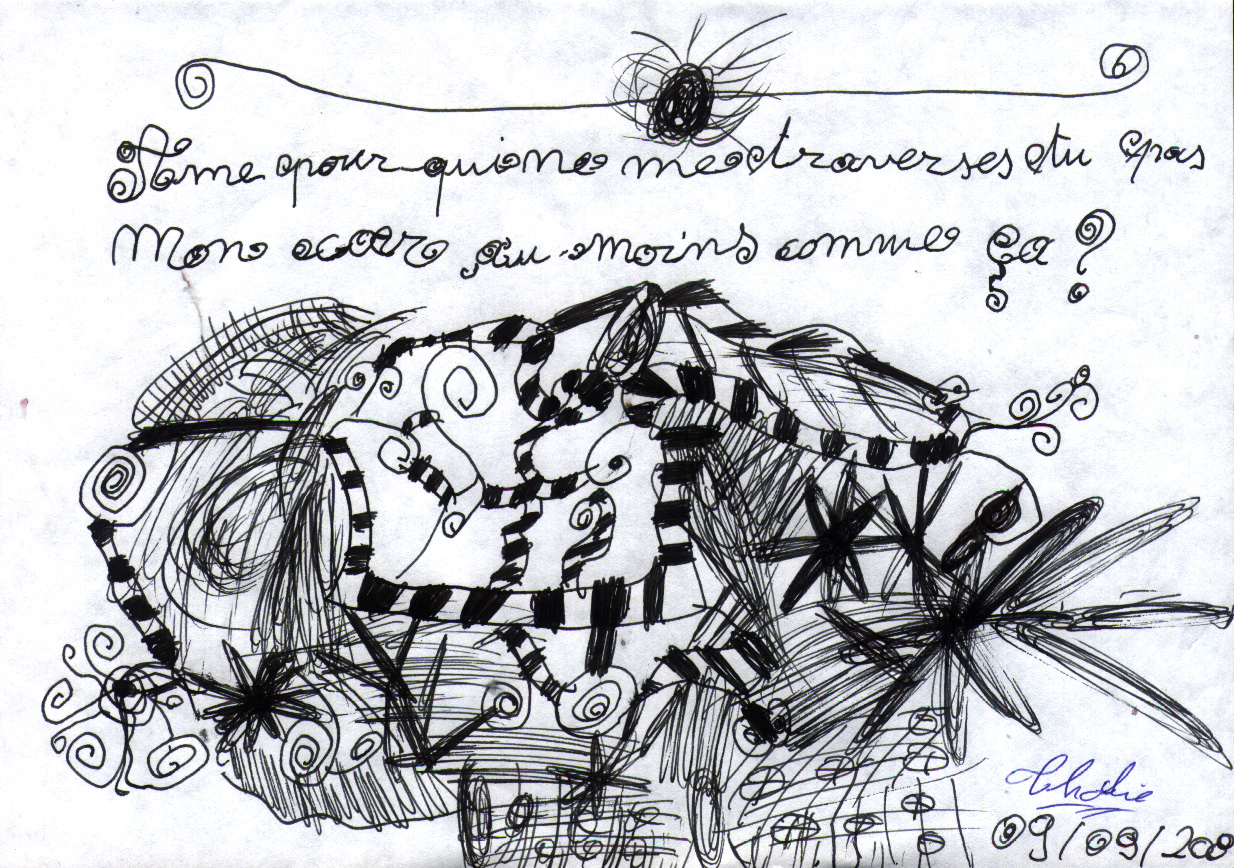 Âme pour qui ne me traverses tu pas
Mon cœur au moins comme ça ?
09/09/200